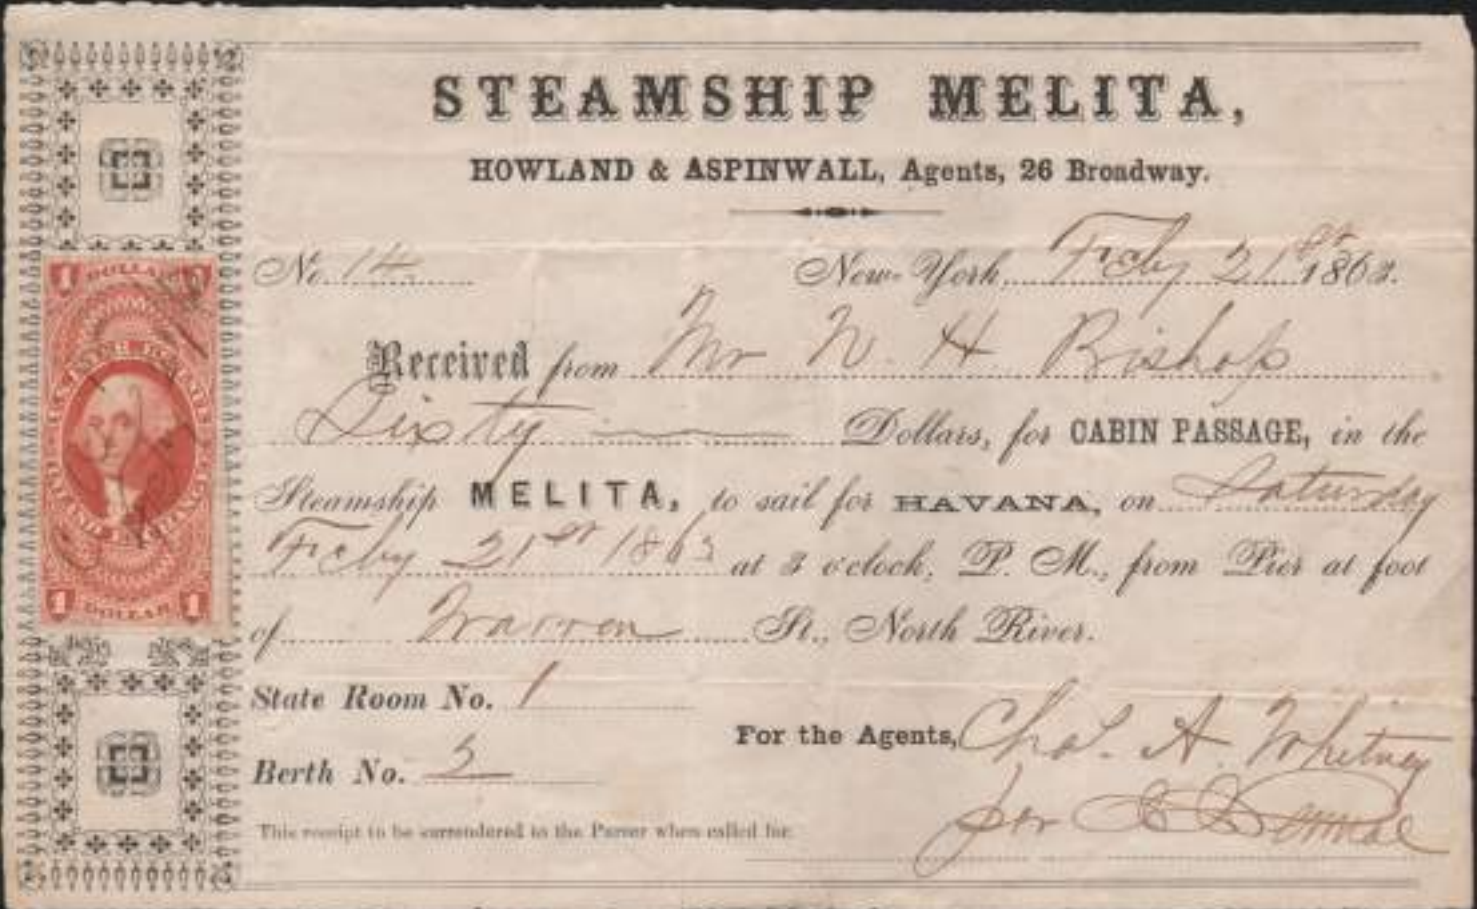 STEAMSHIP MELITA,
HOWLAND & ASPINWALL, Agents, 26 Broadway.
No. 14 New-York, Feby 21st 1863.
Received from Mr N. H. Bishop
Sixty Dollars, for CABIN PASSAGE, in the
Steamship MELITA, to sail for HAVANA, on Saturday
Feby 21st 1863 at 3 o'clock, P. M., from Pier at foot
of Warren St., North River.
State Room No. 1
For the Agents, Chas. A. Whitney
Berth No. 2
per
This receipt to be surrendered to the Purser when called for.
1 DOLLAR 1
U.S. INTER. REV.
INLAND EXCHANGE
1 DOLLAR 1